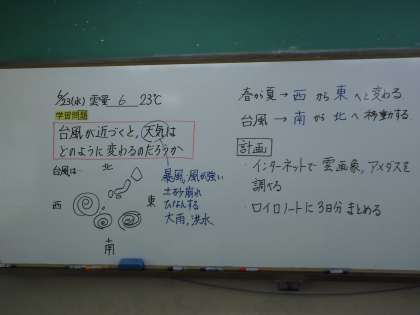 9/23(水) 雲量 6 23℃
学習問題
台風が近づくと、天気は
どのように変わるのだろうか
台風は… 北
暴風、風が強い
土砂崩れ
ひなんする
大雨、洪水
西
東
南
春から夏→西から東へと変わる
台風→南から北へ移動する
計画
・インターネットで雲画象、アメダスを
調べる
・ロイロノートに3日分まとめる